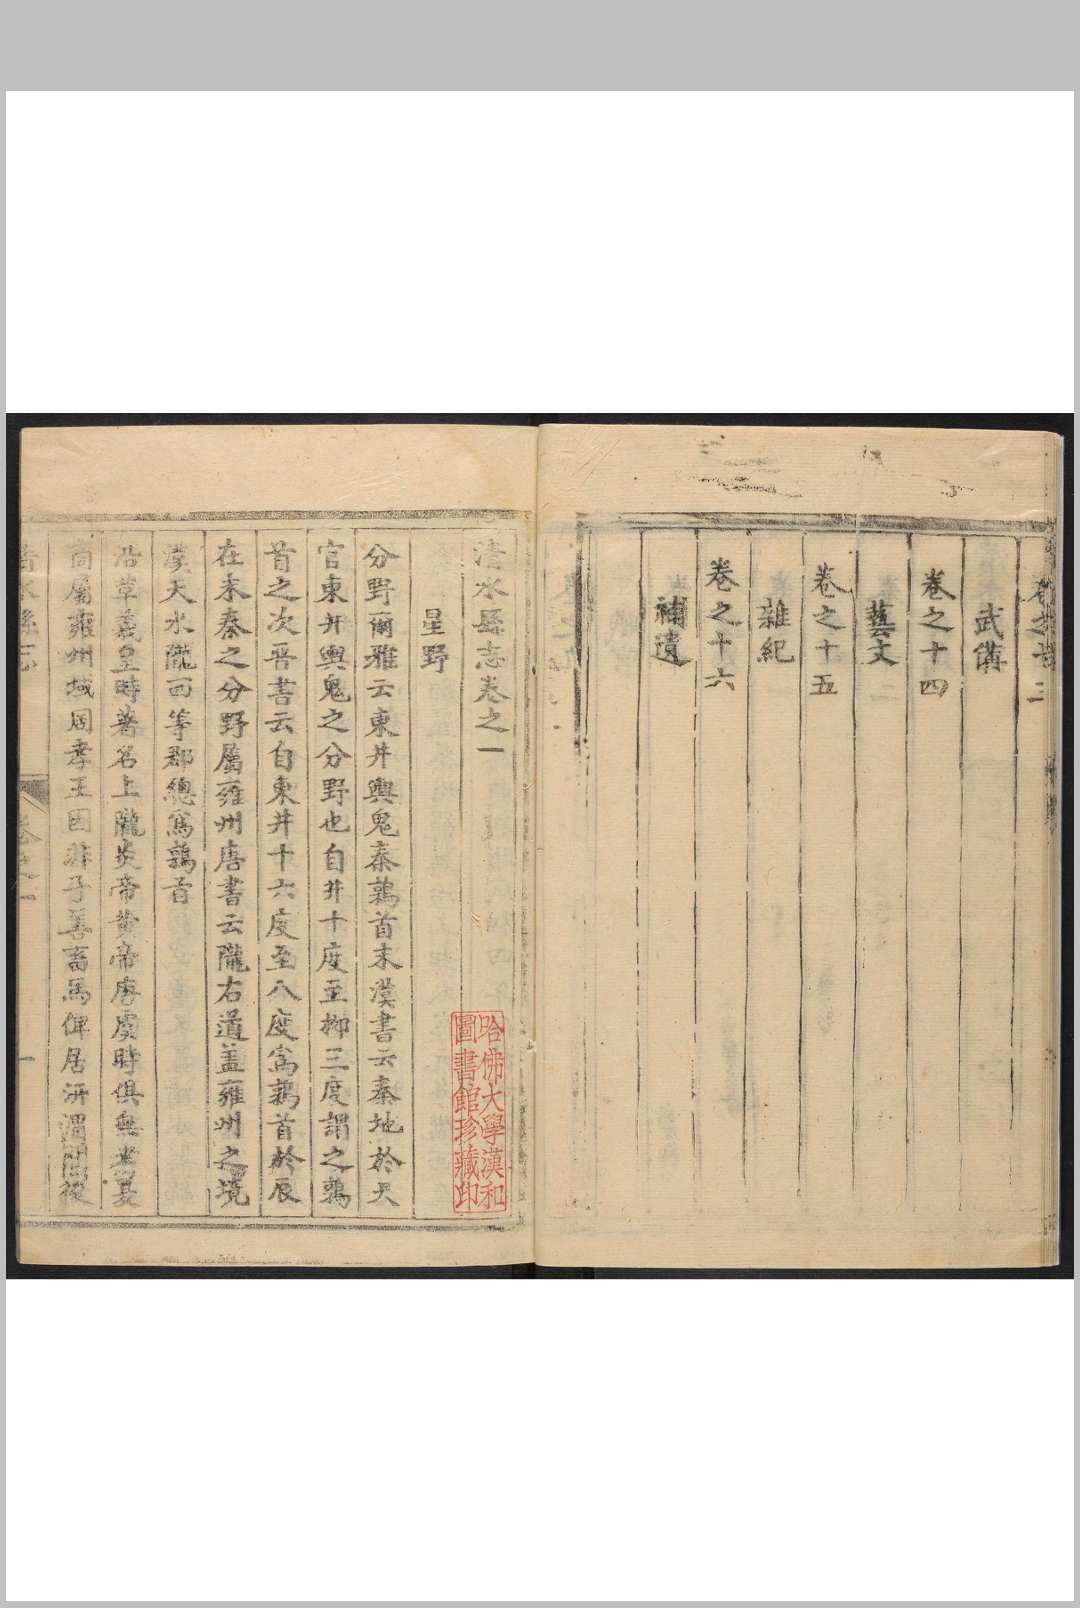 卷之十三
武備
卷之十四
藝文
卷之十五
雜紀
卷之十六
補遺
清水縣志卷之一
星野
分野爾雅云東井輿鬼秦鶉首末漢書云秦地於天
官東井輿鬼之分野也自井十度至柳三度謂之鶉
首之次晉書云自東井十六度至八度爲鶉首於辰
在未秦之分野屬雍州唐書云隴右道盖雍州之境
漢天水隴西等郡總爲鶉首
沿革羲皇時著名上隴炎帝黄帝唐虞時俱無考夏
商屬雍州域周孝王因非子善畜馬俾居汧渭間後
清水縣志
卷之一
一
哈佛大學漢和
圖書館珍藏印